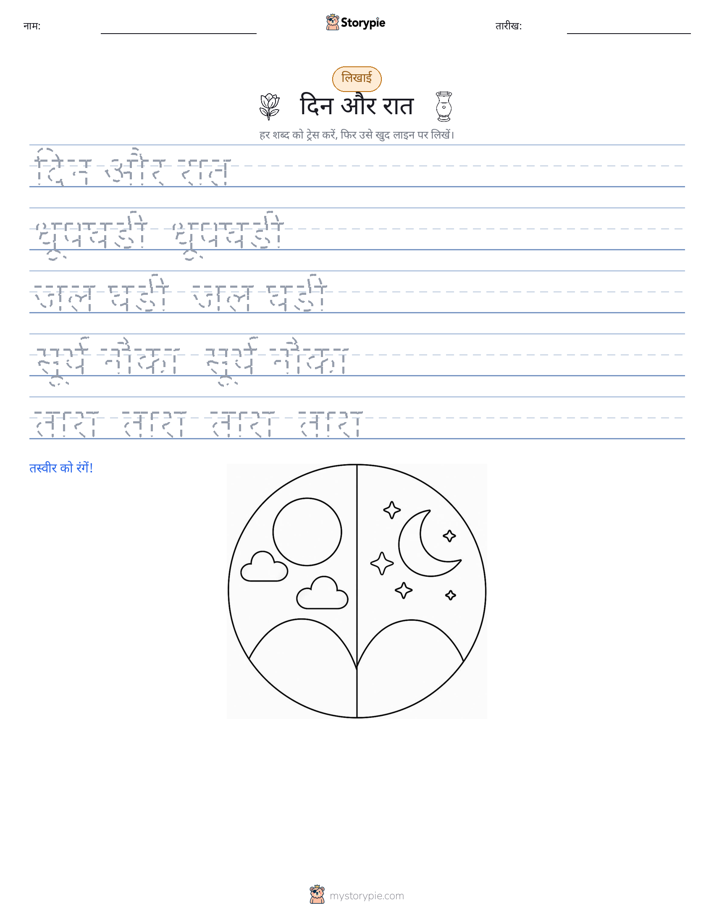 नाम:
Storypie
तारीख:
लिखाई
दिन और रात
हर शब्द को ट्रेस करें, फिर उसे खुद लाइन पर लिखें।
दिन और रात
धूपघड़ी धूपघड़ी
जल घड़ी जल घड़ी
सूर्य नौका सूर्य नौका
तारा तारा तारा तारा
तस्वीर को रंगें!
mystorypie.com